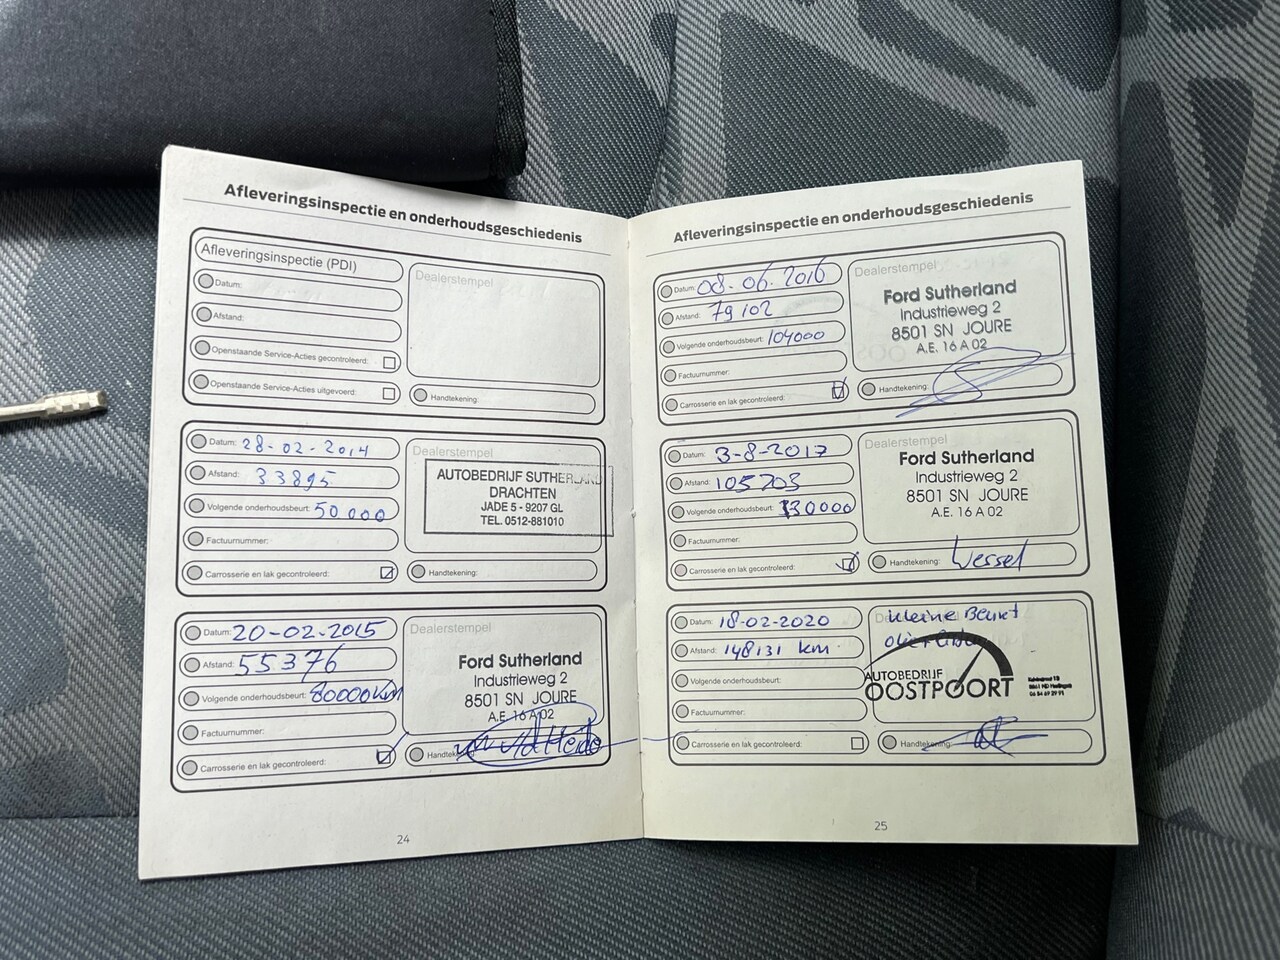 Afleveringsinspectie en onderhoudsgeschiedenis
Afleveringsinspectie (PDI)
Datum:
Afstand:
Openstaande Service-Acties gecontroleerd:
Openstaande Service-Acties uitgevoerd:
Dealerstempel
Handtekening:
Datum: 28-02-2014
Afstand: 33895
Volgende onderhoudsbeurt: 50000
Factuurnummer:
Carrosserie en lak gecontroleerd:
Dealerstempel
AUTOBEDRIJF SUTHERLAND
DRACHTEN
JADE 5 - 9207 GL
TEL. 0512-881010
Handtekening:
Datum: 20-02-2015
Afstand: 55376
Volgende onderhoudsbeurt: 80000km
Factuurnummer:
Carrosserie en lak gecontroleerd:
Dealerstempel
Ford Sutherland
Industrieweg 2
8501 SN JOURE
A.E. 16 A 02
Handtekening:
24
Afleveringsinspectie en onderhoudsgeschiedenis
Datum: 08-06-2016
Afstand: 79102
Volgende onderhoudsbeurt: 104000
Factuurnummer:
Carrosserie en lak gecontroleerd:
Dealerstempel
Ford Sutherland
Industrieweg 2
8501 SN JOURE
A.E. 16 A 02
Handtekening:
Datum: 3-8-2017
Afstand: 105703
Volgende onderhoudsbeurt: 130000
Factuurnummer:
Carrosserie en lak gecontroleerd:
Dealerstempel
Ford Sutherland
Industrieweg 2
8501 SN JOURE
A.E. 16 A 02
Handtekening: Wessel
Datum: 18-02-2020
Afstand: 148131 km
Volgende onderhoudsbeurt:
Factuurnummer:
Carrosserie en lak gecontroleerd:
kleine Beurt
AUTOBEDRIJF
OOSTPOORT
Handtekening:
25